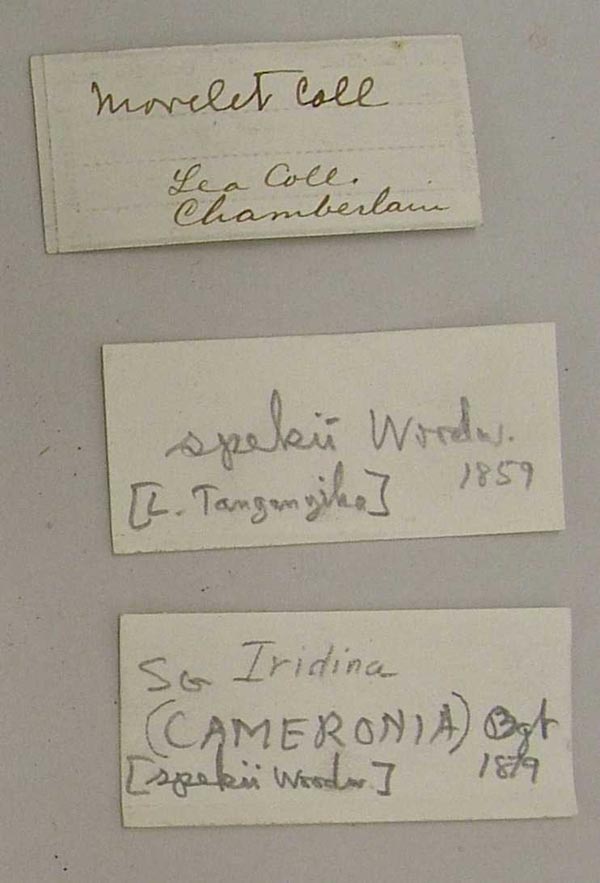 Morelet Coll
Lea Coll.
Chamberlain
spekii Woodw.
1859
[L. Tanganyika]
SG Iridina
(CAMERONIA) Bgt
1879
[spekii Woodw.]